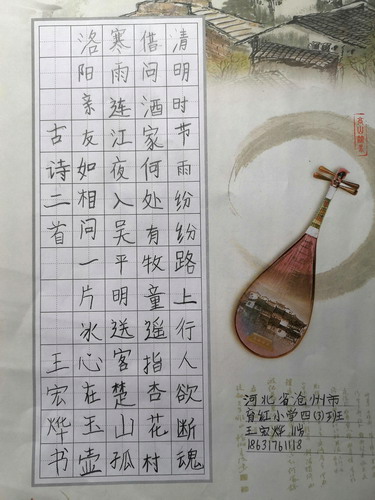 清明时节雨纷纷路上行人欲断魂
借问酒家何处有牧童遥指杏花村
寒雨连江夜入吴平明送客楚山孤
洛阳亲友如相问一片冰心在玉壶
古诗二首 王宏烨书
河北省沧州市
小学四(3)班
王宏烨 11岁
18631761118